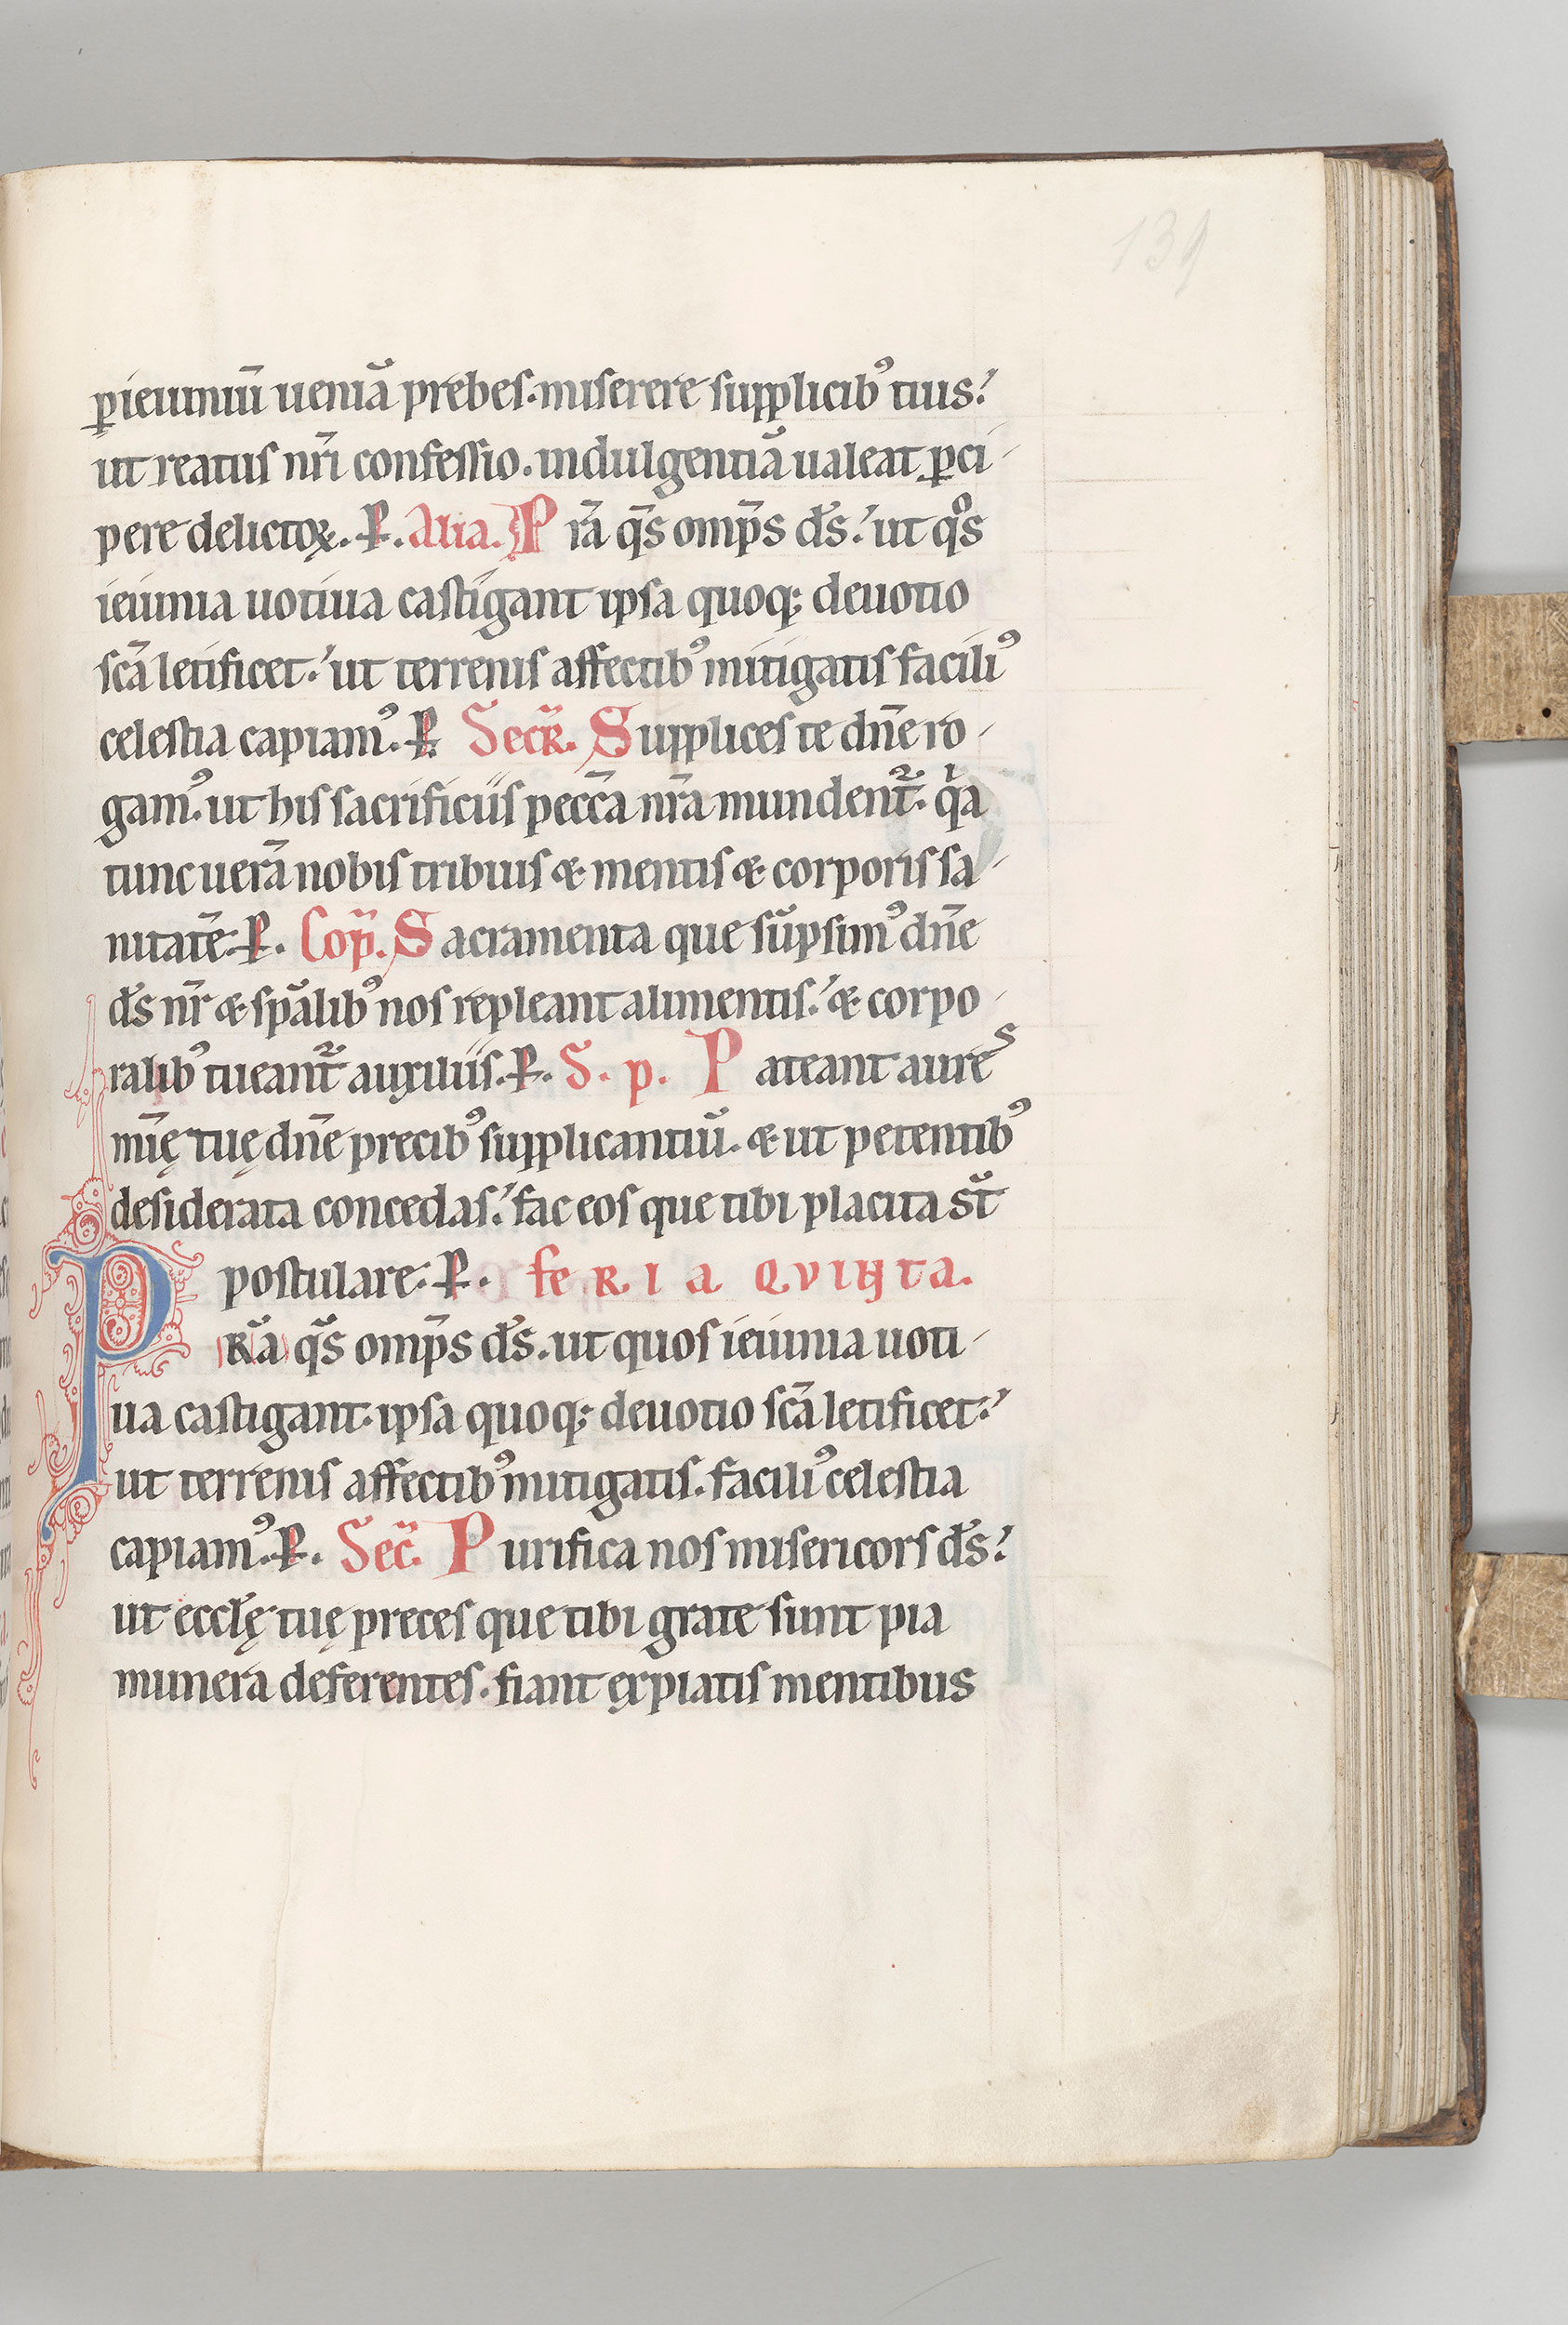 139
ꝑ ieiuniū ueniā prebes. miserere supplicibꝰ tuis.ʼ
ut reatus nr̄i confessio. indulgentiā ualeat ꝑci-
pere delictoꝝ. P. Alia. P rā qs̄ omp̄s ds̄.ʼ ut qͦs
ieiunia uotiua castigant ipsa quoqꝫ deuotio
scā letificet.ʼ ut terrenis affectibꝰ mitigatis faciliꝰ
celestia capiamꝰ. P. Secr̄. S upplices te dn̄e ro-
gamꝰ. ut his sacrificiis pecc̄a nr̄a mundent᷑. qⁱa
tunc uerā nobis tribuis & mentis & corporis sa-
nitatē. P. Cop̄. S acramenta que sūpsimꝰ dn̄e
ds̄ nr̄ & sp̄alibꝰ nos repleant alimentis.ʼ & corpo-
ralibꝰ tueant᷑ auxiliis. P. S. p. P ateant aures
mīę tuę dn̄e precibꝰ supplicantiū. & ut petentibꝰ
desiderata concedas.ʼ fac eos que tibi placita st̄
postulare. P. feRia QVINta.
P Rā qs̄ omp̄s ds̄. ut quos ieiunia uoti-
ua castigant. ipsa quoqꝫ deuotio scā letificet.ʼ
ut terrenis affectibꝰ mitigatis. faciliꝰ celestia
capiamꝰ. P. Sec̄. P urifica nos misericors ds̄.ʼ
ut eccl̄ę tuę preces que tibi grate sunt pia
munera deferentes. fiant expiatis mentibus